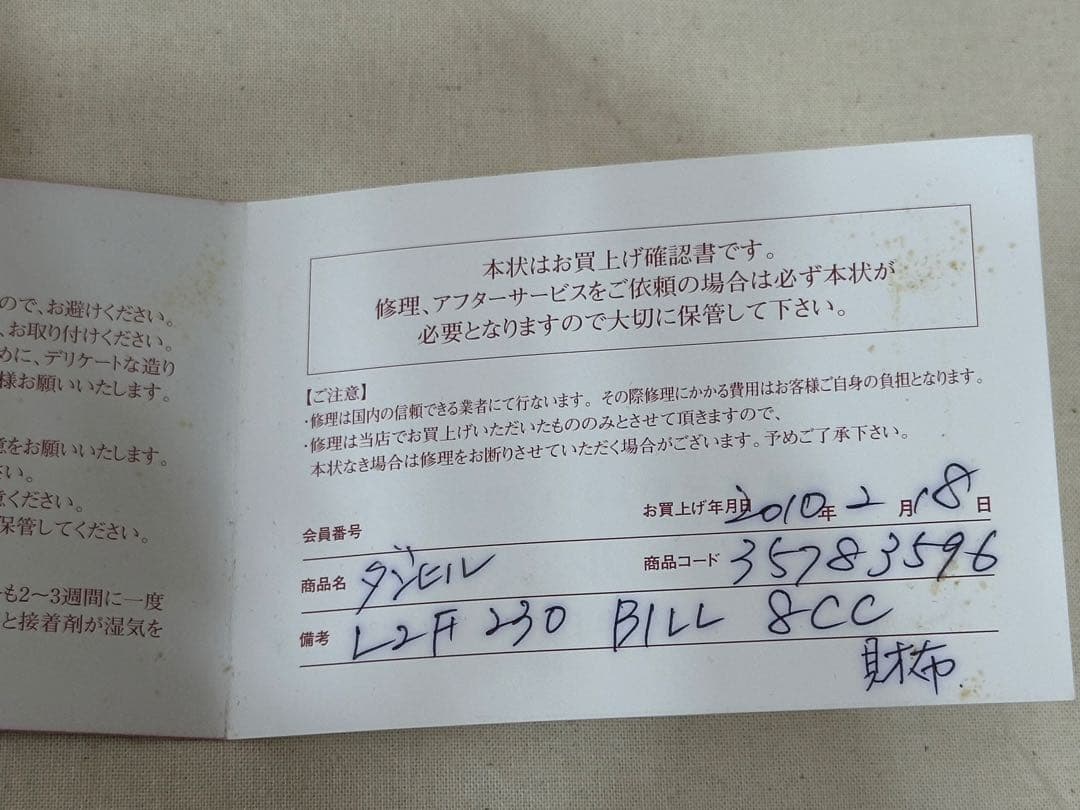 ので、お避けください。
、お取り付けください。
めに、デリケートな造り
様お願いいたします。
意をお願いいたします。
さい。
意ください。
保管してください。
も2〜3週間に一度
と接着剤が湿気を
本状はお買上げ確認書です。
修理、アフターサービスをご依頼の場合は必ず本状が
必要となりますので大切に保管して下さい。
【ご注意】
・修理は国内の信頼できる業者にて行ないます。その際修理にかかる費用はお客様ご自身の負担となります。
・修理は当店でお買上げいただいたもののみとさせて頂きますので、
本状なき場合は修理をお断りさせていただく場合がございます。予めご了承下さい。
お買上げ年月日 2010年 2 月 18 日
会員番号
商品名 ダンヒル 商品コード 35783596
備考 L2F 230 BILL 8CC
財布